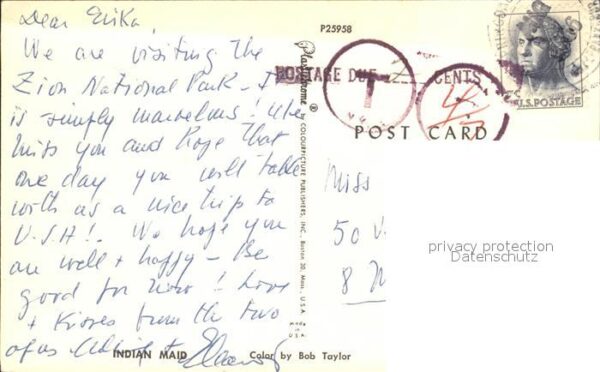 Dear Erika,
We are visiting the
Zion National Park - I
is simply marvelous! We
miss you and hope that
one day you will take
with us a nice trip to
U.S.A!. We hope you
are well + happy - Be
good for now! Love
+ Kisses from the two
of us
P25958
Plastichrome ®
by COLOURPICTURE PUBLISHERS, INC., Boston 30, Mass., U.S.A.
POSTAGE DUE CENTS
T
U.S. POSTAGE
POST CARD
Miss
50
8
privacy protection
Datenschutz
INDIAN MAID Color by Bob Taylor